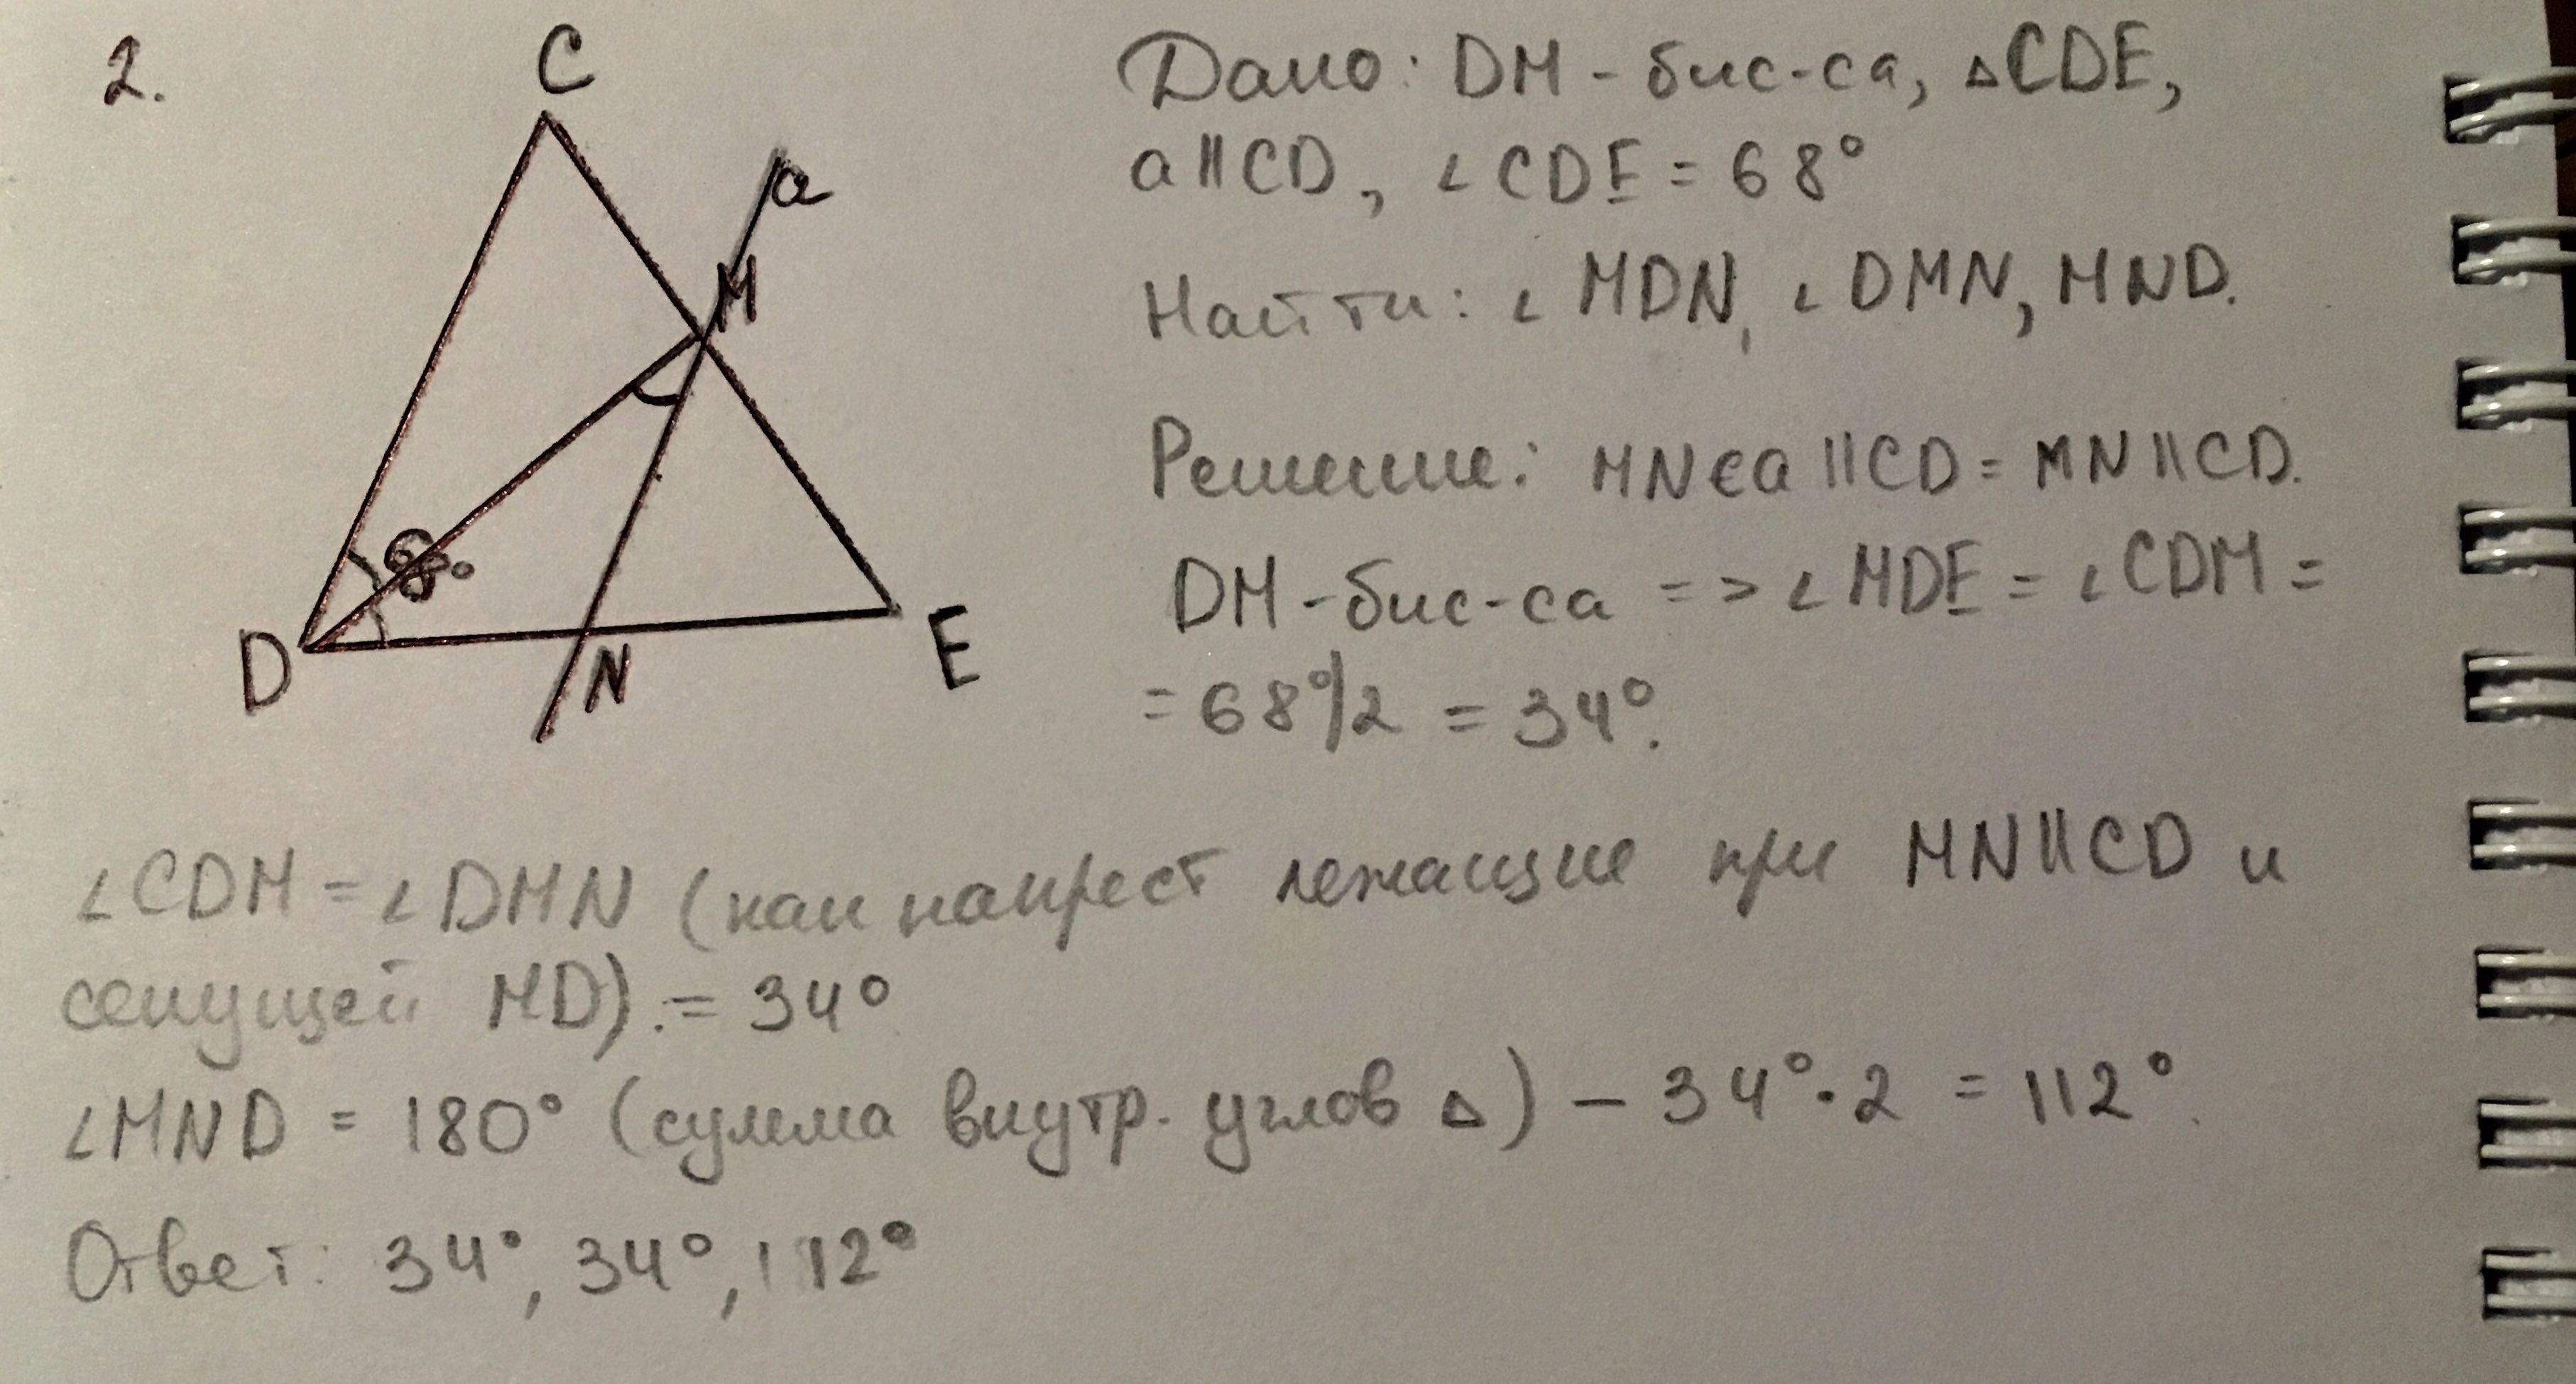 2.
C
a
M
68°
D
N
E
Дано: DM - бис-са, ▵CDE,
a||CD, ∠CDE = 68°
Найти: ∠MDN, ∠DMN, MND.
Решение: MN∈a||CD = MN||CD.
DM - бис-са => ∠MDE = ∠CDM =
= 68°/2 = 34°.
∠CDM = ∠DMN (как накрест лежащие при MN||CD и
секущей MD). = 34°
∠MND = 180° (сумма внутр. углов ▵) - 34°·2 = 112°.
Ответ: 34°, 34°, 112°